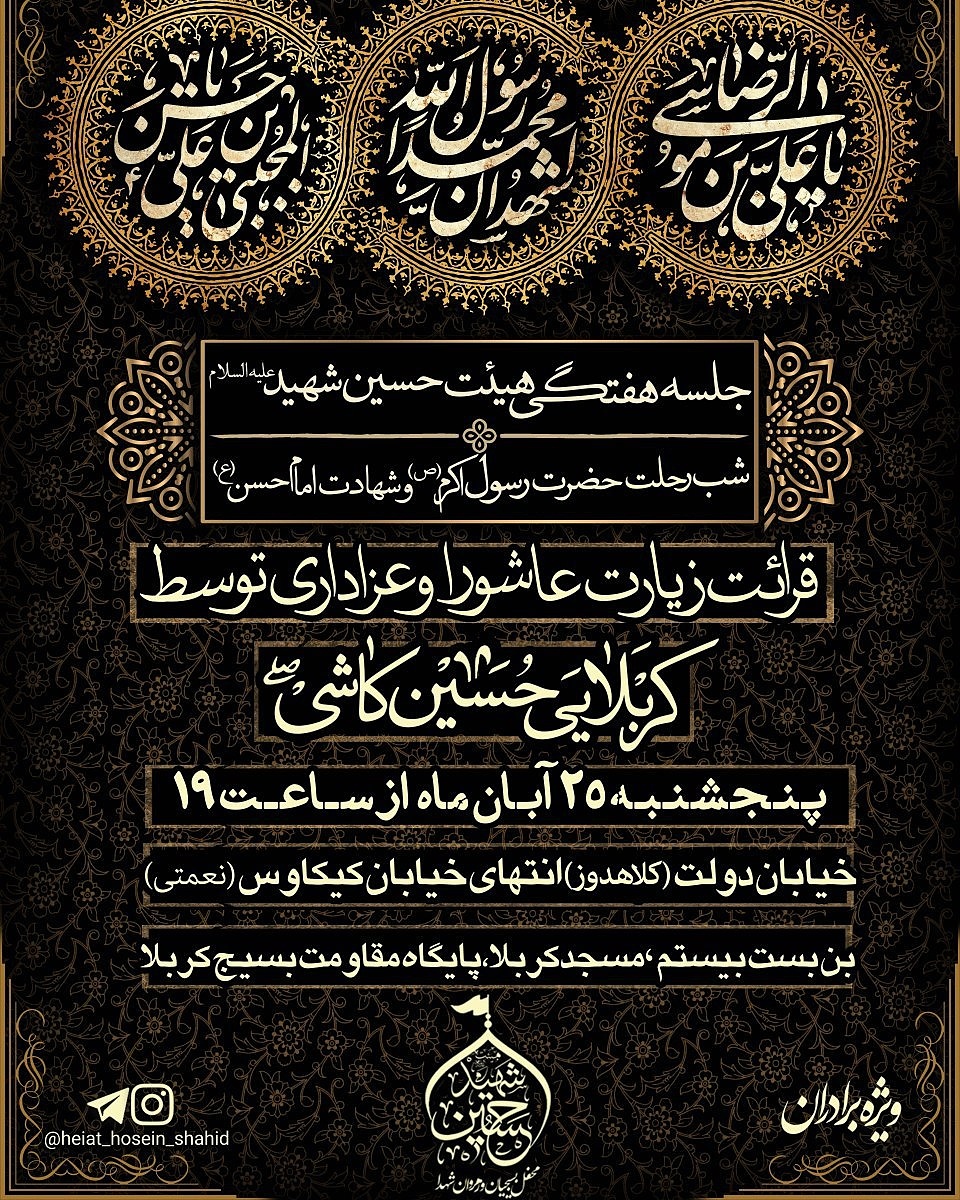 یا علی بن موسی الرضا
اشهد ان محمدا رسول الله
یا حسن بن علی ایها المجتبی
جلسه هفتگی هیئت حسین شهید علیه السلام
شب رحلت حضرت رسول اکرم (ص) و شهادت امام حسن (ع)
قرائت زیارت عاشورا و عزاداری توسط
کربلایی حسین کاشی
پنجشنبه ۲۵ آبان ماه از ساعت ۱۹
خیابان دولت (کلاهدوز) انتهای خیابان کیکاوس (نعمتی)
بن بست بیستم، مسجد کربلا، پایگاه مقاومت بسیج کربلا
ویژه برادران
حسین شهید
محفل بسیجیان و رهروان شهدا
@heiat_hosein_shahid